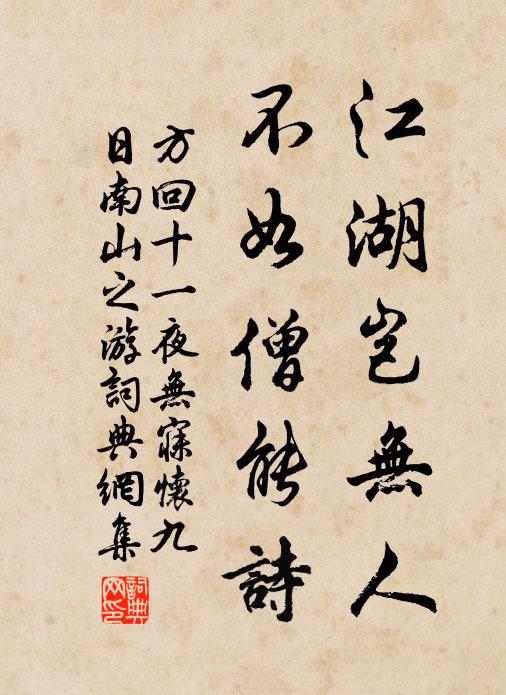 江湖岂無人
不如僧能詩
方回十一夜無寐懷九
日南山之游詞典網集
詞典网印